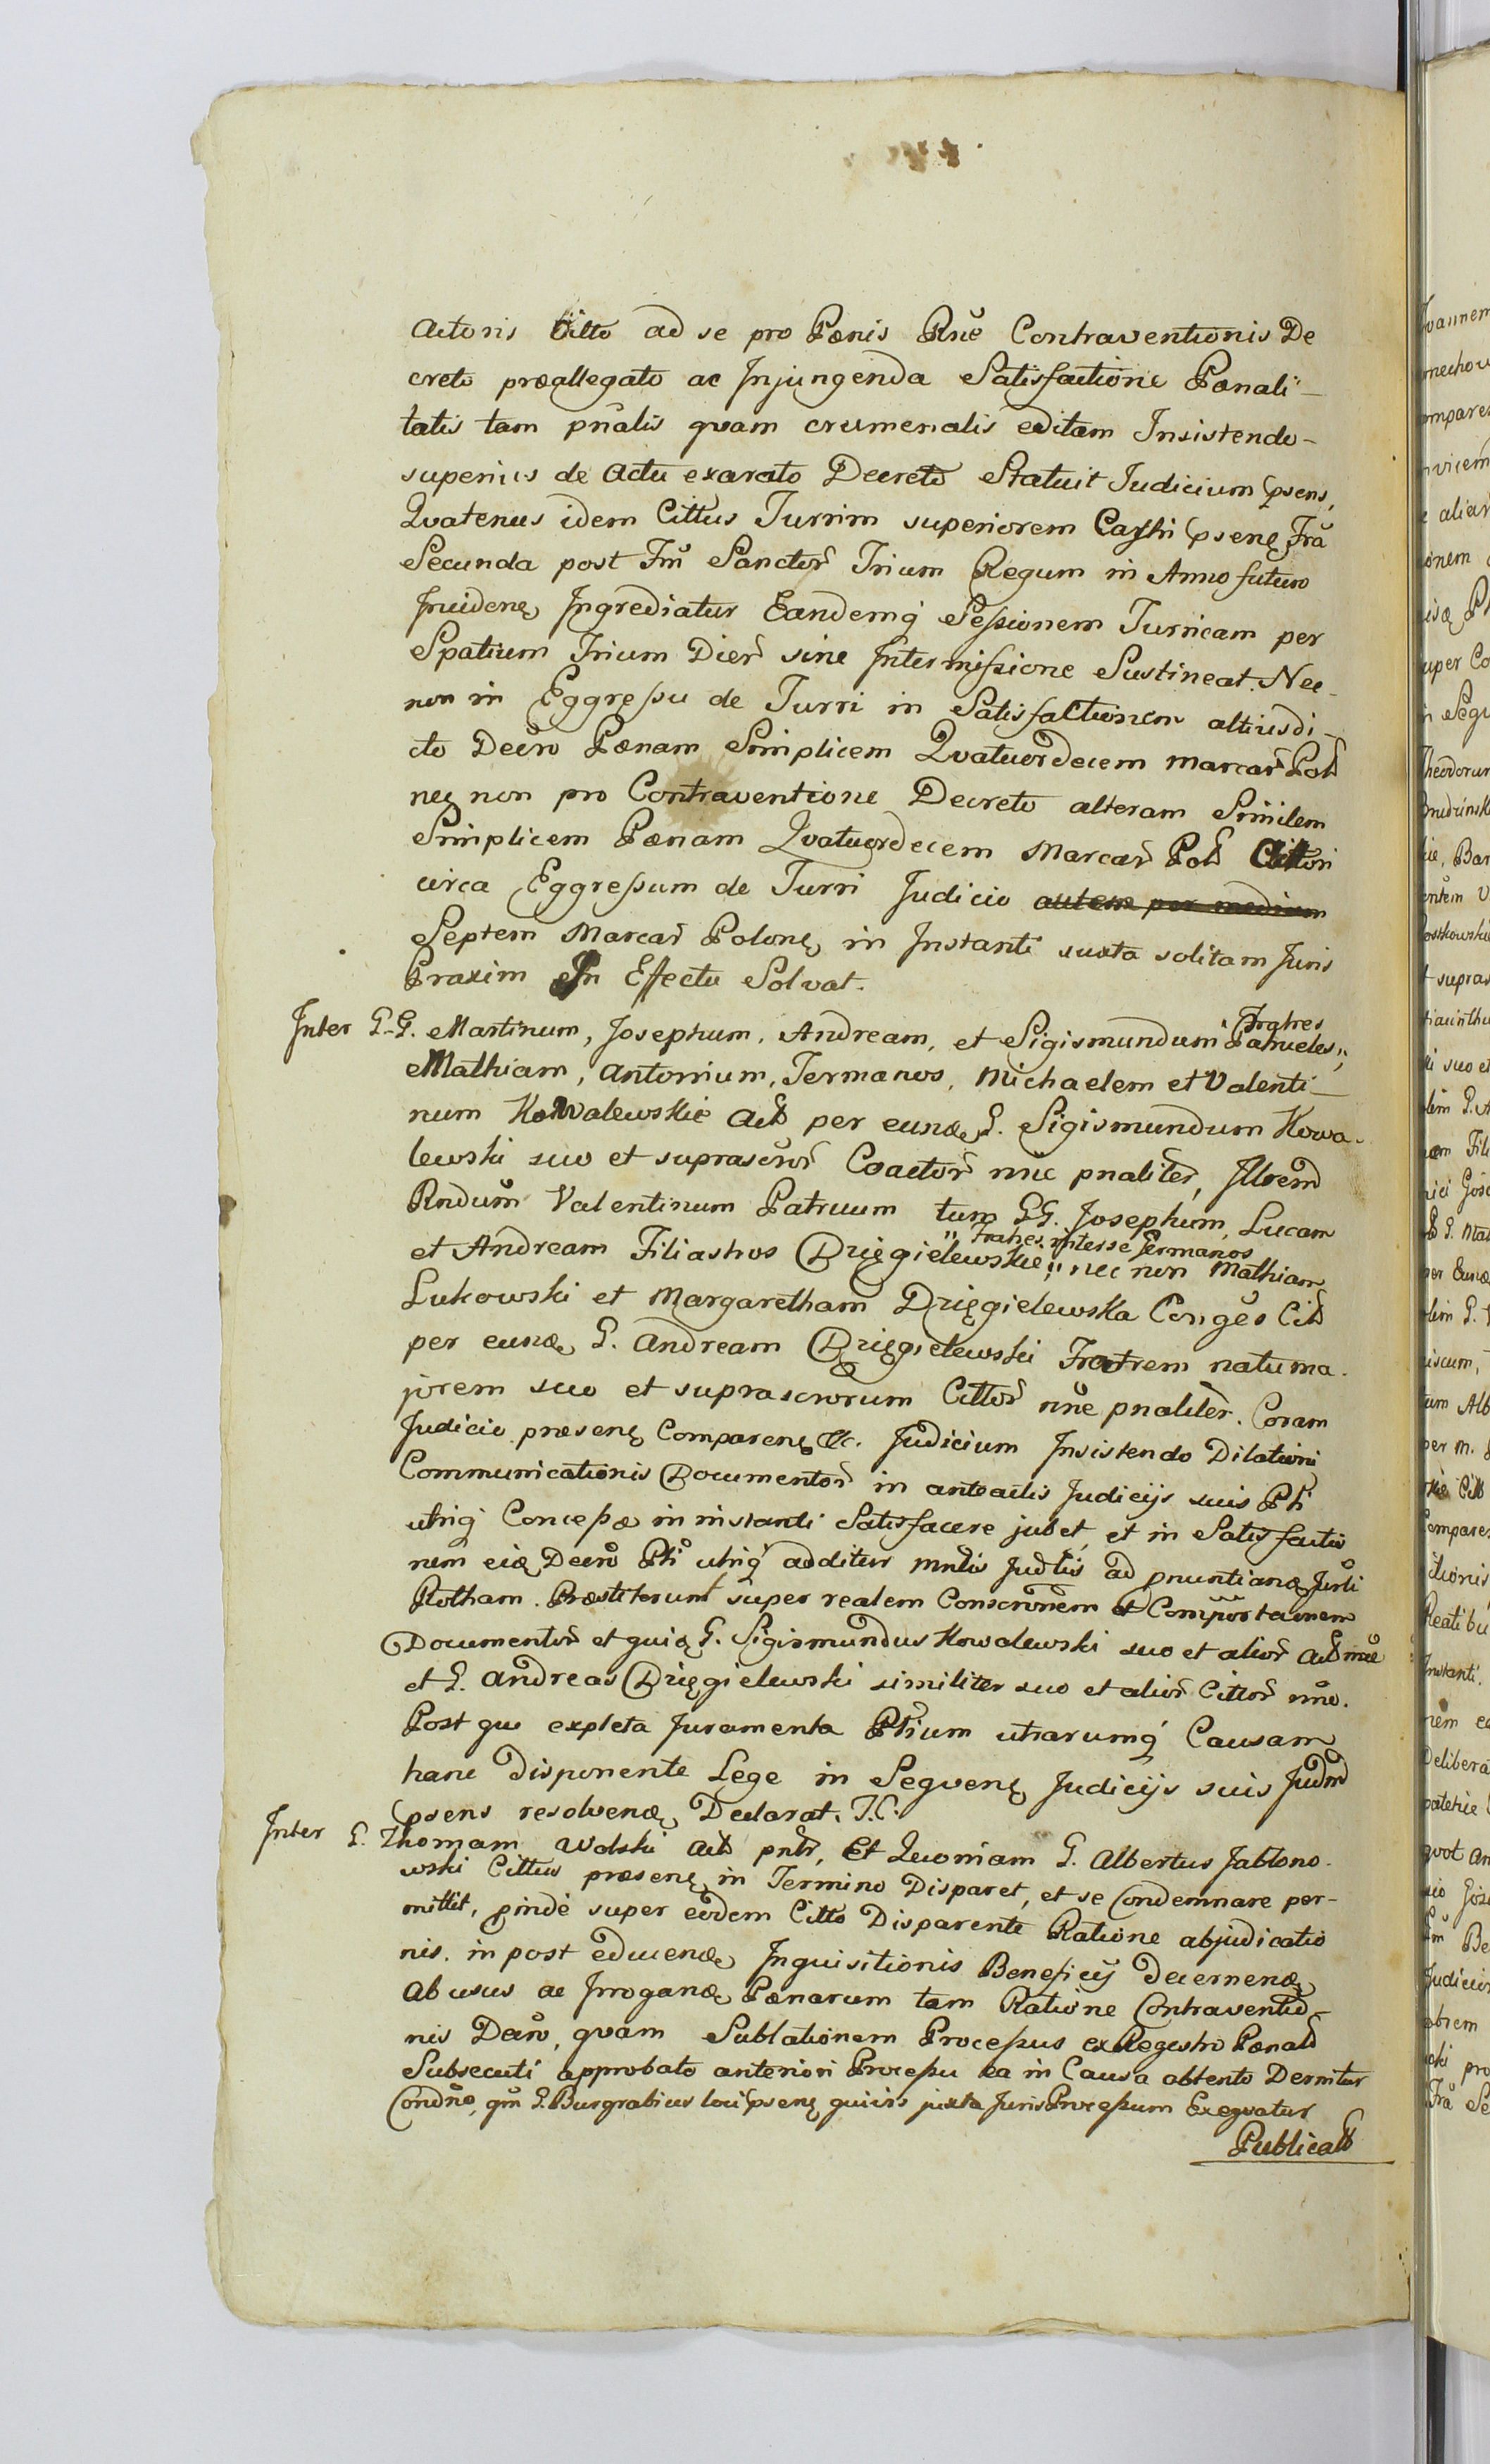 Actoris Citto ad se pro Pænis Rñe Contraventionis De
creto præallegato ac Injungenda Satisfactione Pænali-
tatis tam pñalis quam crumenalis editam Insistendo-
superius de Actu exarato Decreto Statuit Judicium psens,
Qvatenus idem Cittus Turrim superiorem Castri psenę Frã
Secunda post Fm̃ Sanctor̃ Trium Regum in Anno futuro
Incidenę Ingrediatur Eandemq́ Seſsionem Turricam per
Spatium Trium Dier̃ sine Intermiſsione Sustineat. Nec-
non in Eggreſsu de Turri in Satisfactionem altiusdi-
cto Decro Pænam Simplicem Qvatuordecem Marcar̃ Pol̃
neę non pro Contraventione Decreto alteram Similem
Simplicem Pænam Qvatuordecem Marcar̃ Pol̃ Actori
circa Eggreſsum de Turri Judicio autem per medium
Septem Marcar̃ Polonę in Instanti juxta solitam Juris
Praxim In Effectu Solvat.
Inter G.G. Martinum, Josephum, Andream, et Sigismundum Fratres Patrueles,,
Mathiam, Antonium, Germanos, Michaelem et Valenti-
num Kowalewskie Act̃ per eund, G. Sigismundum Kowa-
lewski suo et suprascror̃ Coactor̃ nñe pnaliter̃, Illrem̃
Rndum̃ Valentinum Patruum tum GG. Josephum, Lucam
et Andream Filiastros Dzięgielewskie,, Fratres interse Germanos nec non Mathiam
Lukowski et Margaretham Dzięgielewska Conges Cit̃
per eund, G. Andream Dzięgielewski Fratrem natuma-
jorem suo et suprascrorum Cittor̃ nñe pnaliter̃. Coram
Judicio præsenę Comparenę &c. Judicium Insistendo Dilationi
Communicationis Documentor̃ in anteactis Judicijs suis Pti
utriq́ Conceſsæ in instanti Satisfacere jubet, et in Satisfactio
nem eię Decro Pti utriq́ additur mntis Judtis ad pnuntianą Jurti
Rotham. Præstiterunt super realem Conscrõnem et Comportaõnem
Documentor̃ et quią G. Sigismundus Kowalewski suo et alior̃ Act̃ nñe
et G. Andreas Dzięgielewski similiter suo et alior̃ Cittor̃ nñe.
Post quo expleta Juramenta Ptium utrarumq́ Causam
hanc disponente Lege in Seqvenę Judicijs suis Judm̃
psens resolvend, Declarat. T.C.
Inter G. Thomam Wolski Act̃ pntr̃, Et Quoniam G. Albertus Jablono-
wski Cittus præsenę in Termino Disparet, et se Condemnare per-
mittit, pindè super eodem Citto Disparente Ratione abjudicatio
nis. in post educend, Inquisitionis Beneficij Decernend,
Abusus ac Irrogand, Pænarum tam Ratione Contraventio-
nis Decro, qvam Sublationem Proceſsus ex Regestro Pænal̃
Subsecuti approbato anteriori Proceſsu ea in Causa obtento Dernitur
Condño, qm̃ G. Burgrabius loci psenę quivis juxta Juris Proceſsum Exeqvatur
Publicat̃